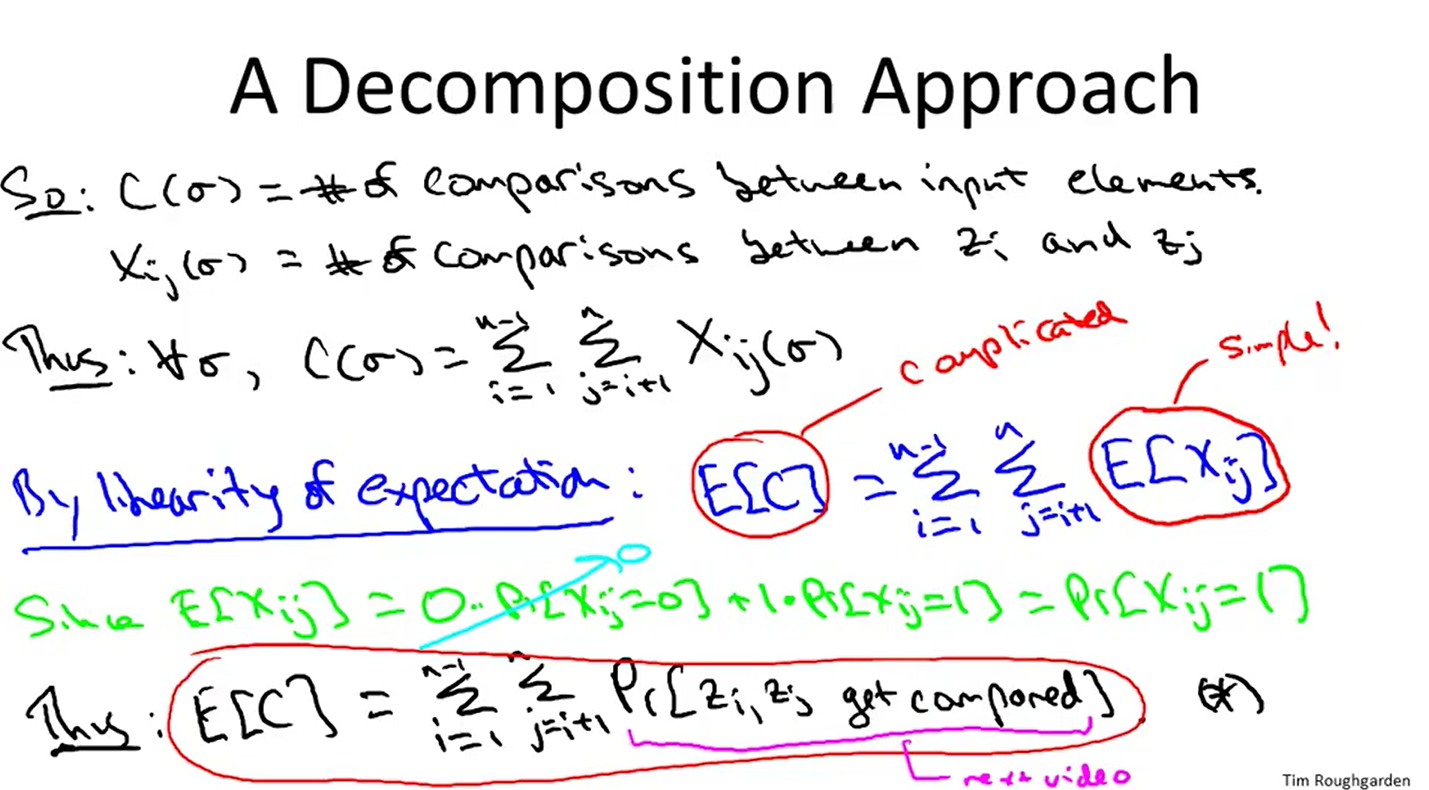 A Decomposition Approach
So: C(σ) = # of comparisons between input elements.
Xij(σ) = # of comparisons between zi and zj
Thus: ∀σ, C(σ) = ∑_{i=1}^{n-1} ∑_{j=i+1}^{n} Xij(σ)
complicated
simple!
By linearity of expectation: E[C] = ∑_{i=1}^{n-1} ∑_{j=i+1}^{n} E[Xij]
0
Since E[Xij] = 0·Pr[Xij=0] + 1·Pr[Xij=1] = Pr[Xij=1]
Thus: E[C] = ∑_{i=1}^{n-1} ∑_{j=i+1}^{n} Pr[zi, zj get compared] (*)
next video
Tim Roughgarden